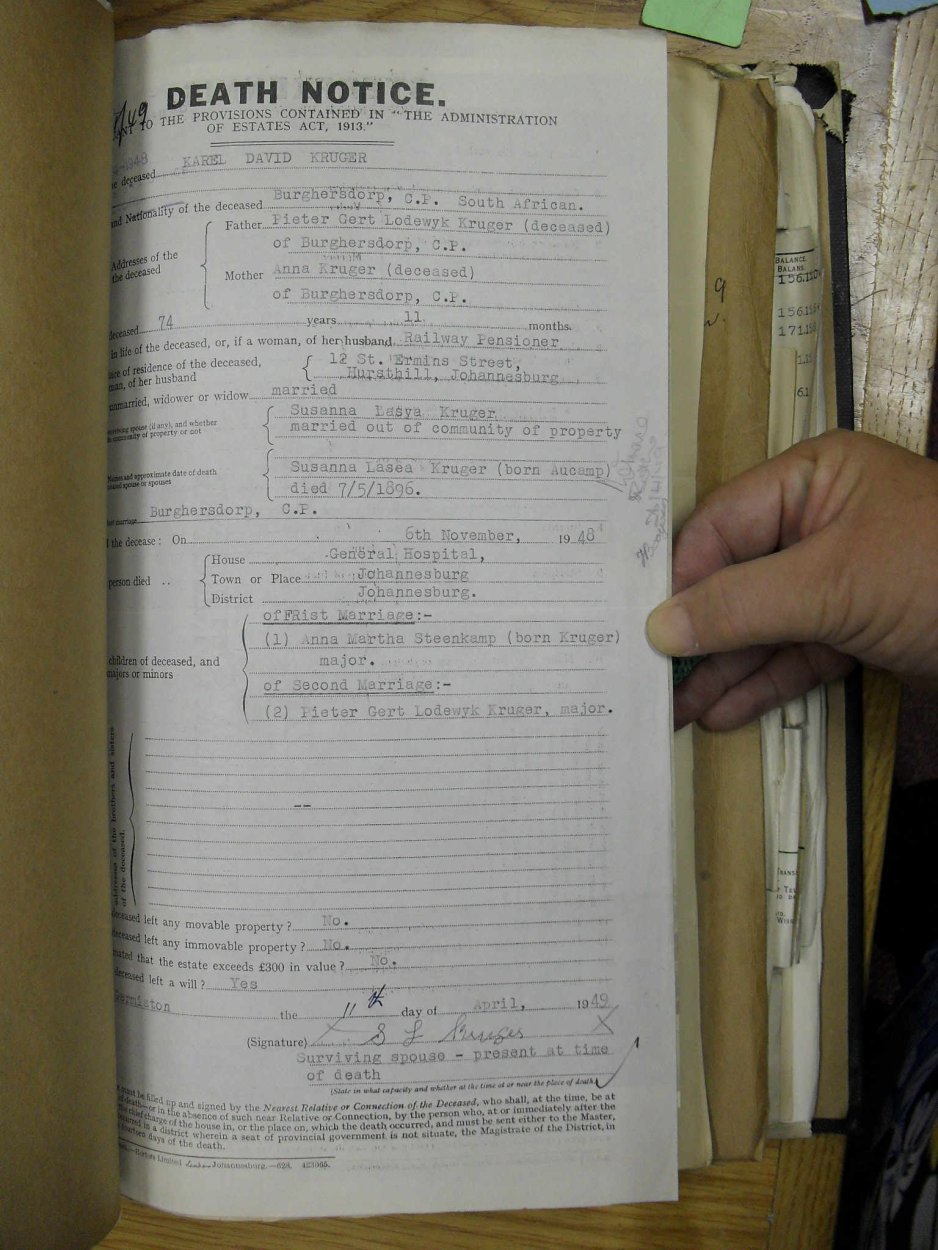 7/49 DEATH NOTICE.
TO THE PROVISIONS CONTAINED IN "THE ADMINISTRATION
OF ESTATES ACT, 1913."
deceased KAREL DAVID KRUGER
and Nationality of the deceased Burghersdorp, C.P. South African.
Father Pieter Gert Lodewyk Kruger (deceased)
Addresses of the
the deceased
of Burghersdorp, C.P.
Mother Anna Kruger (deceased)
of Burghersdorp, C.P.
deceased 74 years 11 months.
in life of the deceased, or, if a woman, of her husband Railway Pensioner
of residence of the deceased,
of her husband
12 St. Ermins Street,
Hursthill, Johannesburg
unmarried, widower or widow married
spouse (if any), and whether
community of property or not
Susanna Lasya Kruger
married out of community of property
Names and approximate date of death
spouse or spouses
Susanna Lasea Kruger (born Aucamp)
died 7/5/1896.
marriage Burghersdorp, C.P.
the decease: On 6th November, 1948
person died ..
House General Hospital,
Town or Place Johannesburg
District Johannesburg.
children of deceased, and
majors or minors
of FRist Marriage:-
(1) Anna Martha Steenkamp (born Kruger)
major.
of Second Marriage:-
(2) Pieter Gert Lodewyk Kruger, major.
addresses of the brothers and sisters
of the deceased.
--
deceased left any movable property? No.
deceased left any immovable property? No.
that the estate exceeds £300 in value? No.
deceased left a will? Yes
the 11th day of April, 1949
(Signature) S L Kruger
Surviving spouse - present at time
of death
(State in what capacity and whether at the time at or near the place of death)
must be filled up and signed by the Nearest Relative or Connection of the Deceased, who shall, at the time, be at
of death—or in the absence of such near Relative or Connection, by the person who, at or immediately after the
chief charge of the house in, or the place on, which the death occurred, and must be sent either to the Master,
in a district wherein a seat of provincial government is not situate, the Magistrate of the District, in
fourteen days of the death.
Limited Johannesburg.—628. 423065.
BALANCE
BALANS.